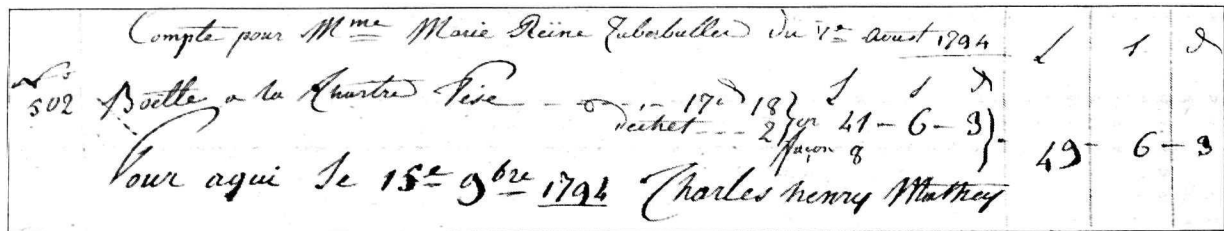 Compte pour Mme Marie Reine Zuberbuller du 1er Aoust 1794 L s d
No 502 Boëtte a la Chartre Pese 17 d 18 L s d
dechet 2 or 41 - 6 - 3
façon 8 49 - 6 - 3
Pour aqui le 15e 9bre 1794 Charles henry Mathey